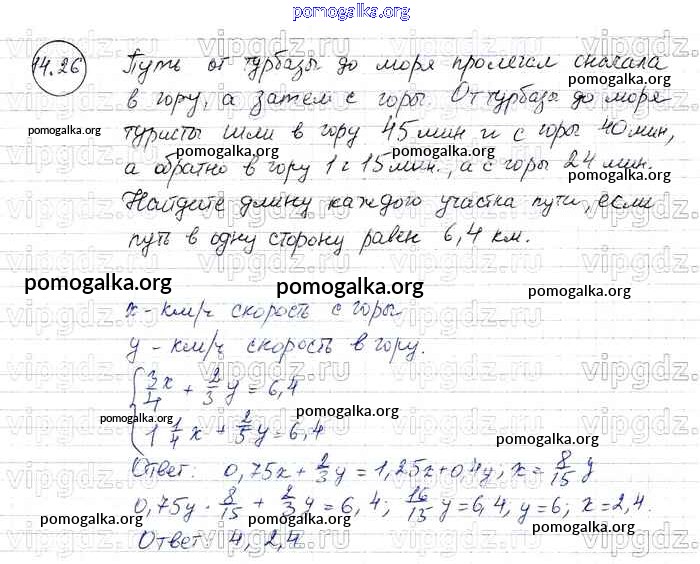 pomogalka.org
14.26 Путь от турбазы до моря пролегал сначала
в гору, а затем с горы. От турбазы до моря
pomogalka.org pomogalka.org
туристы шли в гору 45 мин и с горы 40 мин,
pomogalka.org pomogalka.org
а обратно в гору 1 ч 15 мин., а с горы 24 мин.
pomogalka.org
Найдите длину каждого участка пути, если
pomogalka.org
путь в одну сторону равен 6,4 км.
pomogalka.org pomogalka.org pomogalka.org
x - км/ч скорость с горы
y - км/ч скорость в гору.
3/4 x + 2/3 y = 6,4
pomogalka.org pomogalka.org
1 1/4 x + 2/5 y = 6,4
pomogalka.org
Ответ: 0,75x + 2/3 y = 1,25x + 0,4y; x = 8/15 y
0,75y · 8/15 + 2/3 y = 6,4; 16/15 y = 6,4, y = 6; x = 2,4.
pomogalka.org pomogalka.org pomogalka.org
Ответ: 4, 2,4
vipgdz